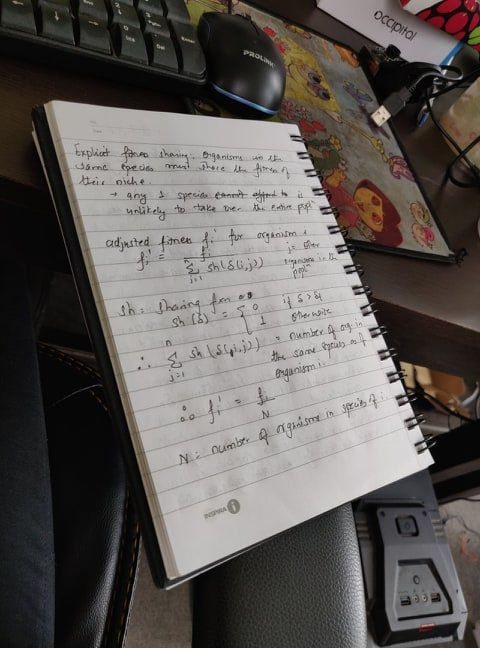 PROLINK
occipital
Explicit fitness sharing: organisms in the
same species must share the fitness of
their niche
→ any 1 species cannot afford to is
unlikely to take over the entire popl^n
adjusted fitness f_i' for organism i
f_i' = f_i / Σ_{j=1}^{n} sh(δ(i,j))
j = other
organisms in the
popl^n
sh = sharing fxn
sh(δ) = { 0 if δ > δ_t
1 otherwise
∴ Σ_{j=1}^{n} sh(δ(i,j)) = number of org. in
the same species as of
organism i.
∴ f_i' = f_i / N
N = number of organisms in species of i
INSPIRA i